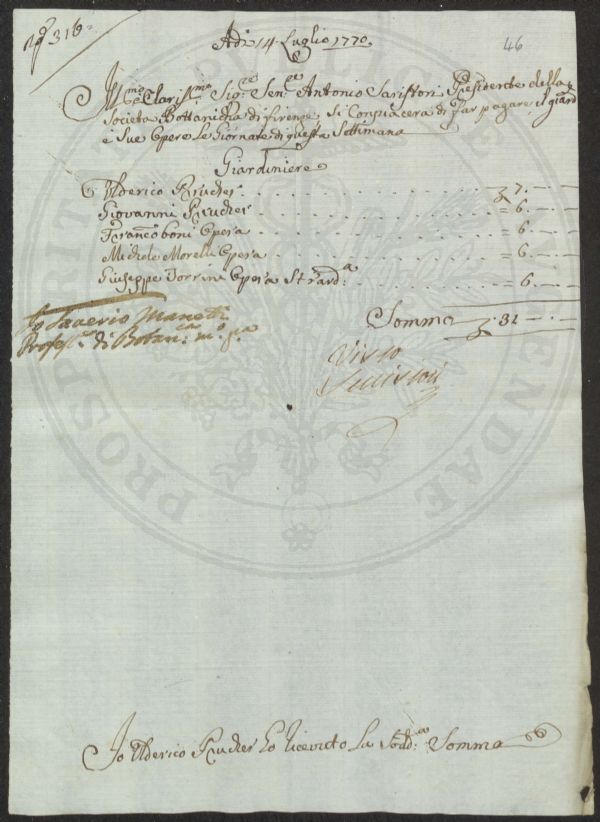 N° 316
46
Adi 14 Luglio 1770
Ill:mo e Clariss:mo Sig:re Sen:re Antonio Saristori Presidente della
Societa Bottanicha di firenze, si Conpiacera di far pagare, il giard
e Sue Opere Le Giornate di questa Settimana
Giardiniere
Ulderico Prucher 7. — —
Giovanni Prucher = 6. — —
Franco boni Opera = 6. — —
Michele Morelli Opera = 6. — —
Giuseppe Torrini Opera Strard:a 6. — —
Somma 31 — —
Io Saverio Manetti
Profess:re di Botan:ca m:o p:a
Visto
PROSPERITATI PUBLICAE AUGENDAE
Io Ulderico Prucher ho ricevuto La Sodd:a Somma